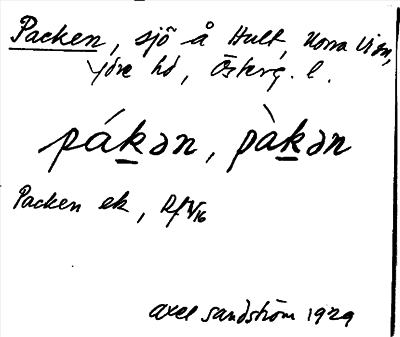 Packen, sjö å Hult, Norra Vi sn,
Ydre hd, Österg. l.
pákən, pàkən
Packen ek, Rf V/16
Axel Sandström 1929